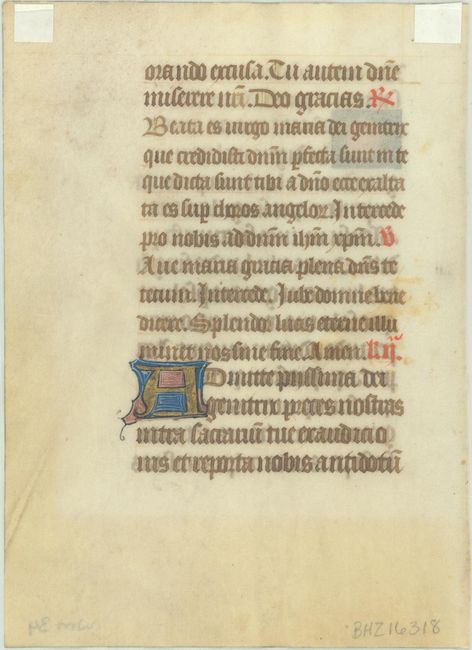 orando excusa. Tu autem dñe
miserere nr̃i. Deo gracias. R
Beata es uirgo maria dei genitrix
que credidisti dnm̃ ꝑfecta sunt in te
que dicta sunt tibi a dño ecce exalta
ta es suꝑ choros angeloꝝ. Intercede
pro nobis ad dnm̃ ihm̃ xpm̃. V
Aue maria gracia plena dns̃ te
tecum. Intercede. Iube domne bene
dicere. Splendor lucis eterne illu
minet nos sine fine. Amen. l. ij.
Admitte pijssima dei
genitrix preces nostras
intra sacrariũ tue exaudicio
nis et reporta nobis antidotũ
BHZ16318